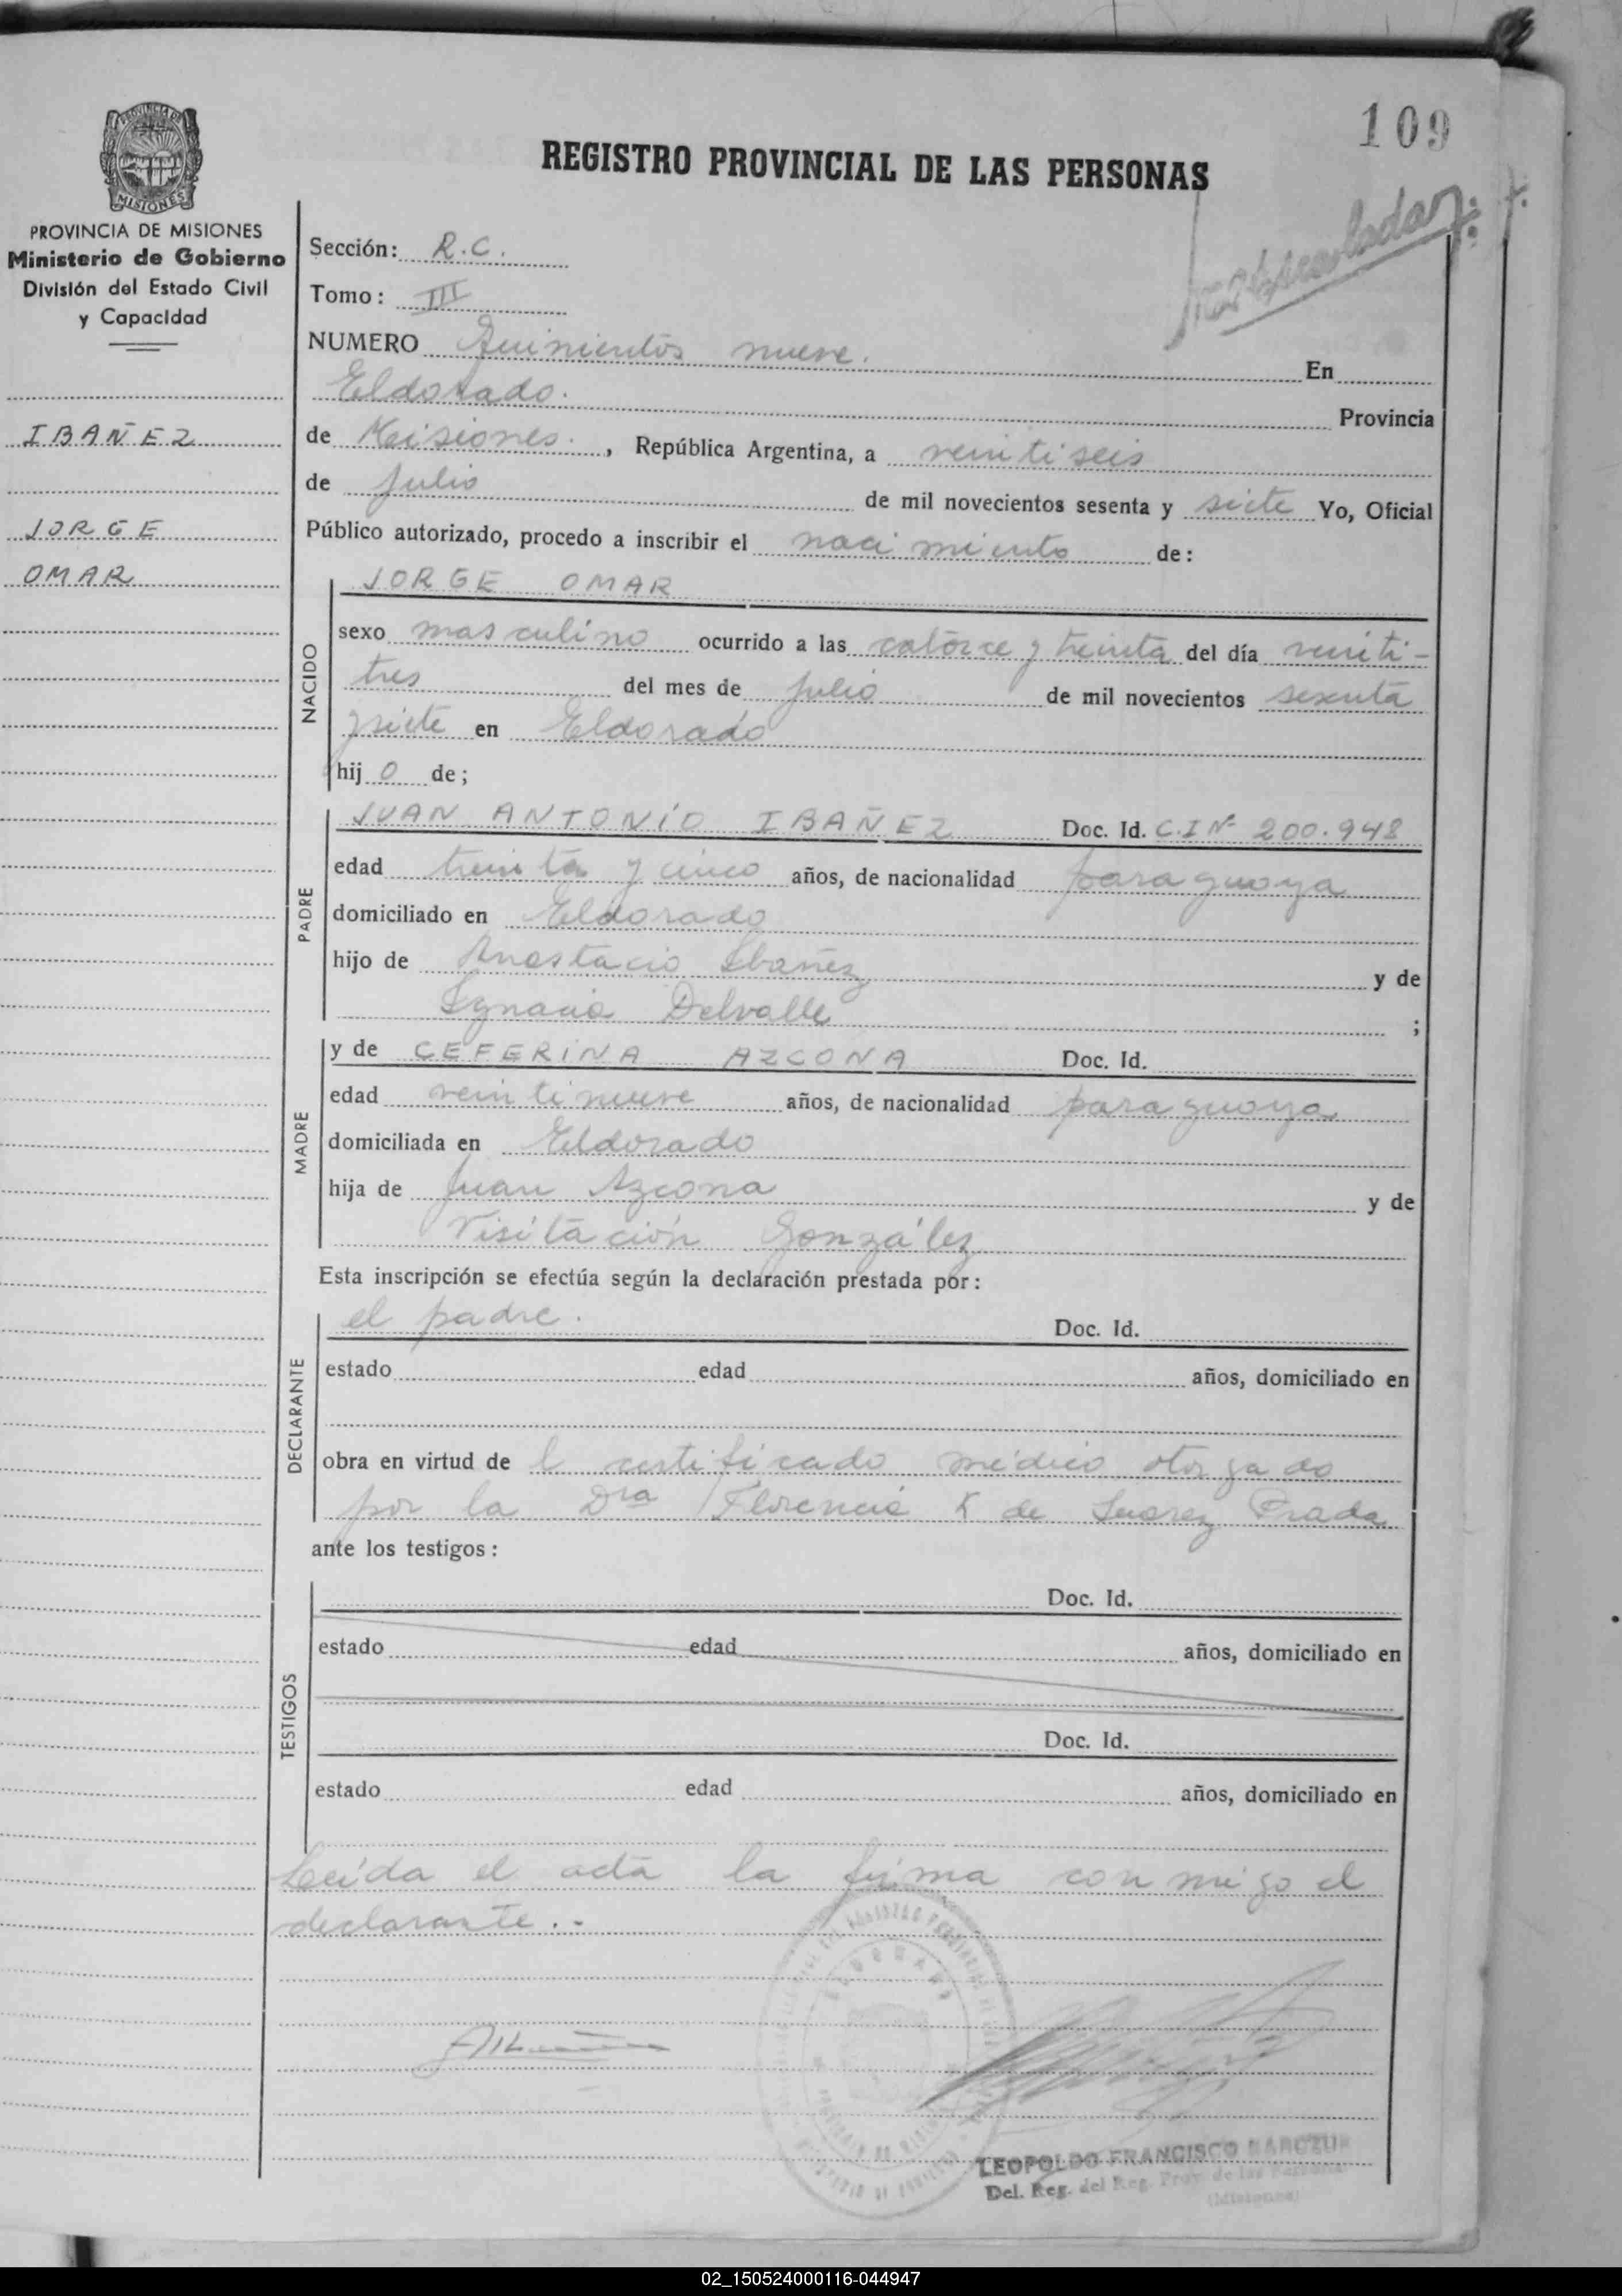 109
REGISTRO PROVINCIAL DE LAS PERSONAS
PROVINCIA DE
MISIONES
PROVINCIA DE MISIONES
Ministerio de Gobierno
División del Estado Civil
y Capacidad
IBAÑEZ
JORGE
OMAR
Matriculado
Sección: R.C.
Tomo: III
NUMERO Quinientos nueve. En
Eldorado. Provincia
de Misiones., República Argentina, a veintiseis
de Julio de mil novecientos sesenta y siete Yo, Oficial
Público autorizado, procedo a inscribir el nacimiento de:
JORGE OMAR
NACIDO
sexo masculino ocurrido a las catorce y treinta del día veinti-
tres del mes de julio de mil novecientos sesenta
y siete en Eldorado
hij o de;
PADRE
JUAN ANTONIO IBAÑEZ Doc. Id. C.I Nº 200.948
edad treinta y cinco años, de nacionalidad paraguaya
domiciliado en Eldorado
hijo de Anastacio Ibañez y de
Ignacia Delvalle ;
MADRE
y de CEFERINA AZCONA Doc. Id.
edad veintinueve años, de nacionalidad paraguaya
domiciliada en Eldorado
hija de Juan Azcona y de
Visitación González
Esta inscripción se efectúa según la declaración prestada por:
DECLARANTE
el padre. Doc. Id.
estado edad años, domiciliado en
obra en virtud de l certificado médico otorgado
por la Dra Florencia K de Suarez Prada
ante los testigos:
TESTIGOS
Doc. Id.
estado edad años, domiciliado en
Doc. Id.
estado edad años, domiciliado en
Leída el acta la firma conmigo el
declarante.-
LEOPOLDO FRANCISCO
Del. Reg. del Reg. Prov. de las Personas
(Misiones)
02_150524000116-044947